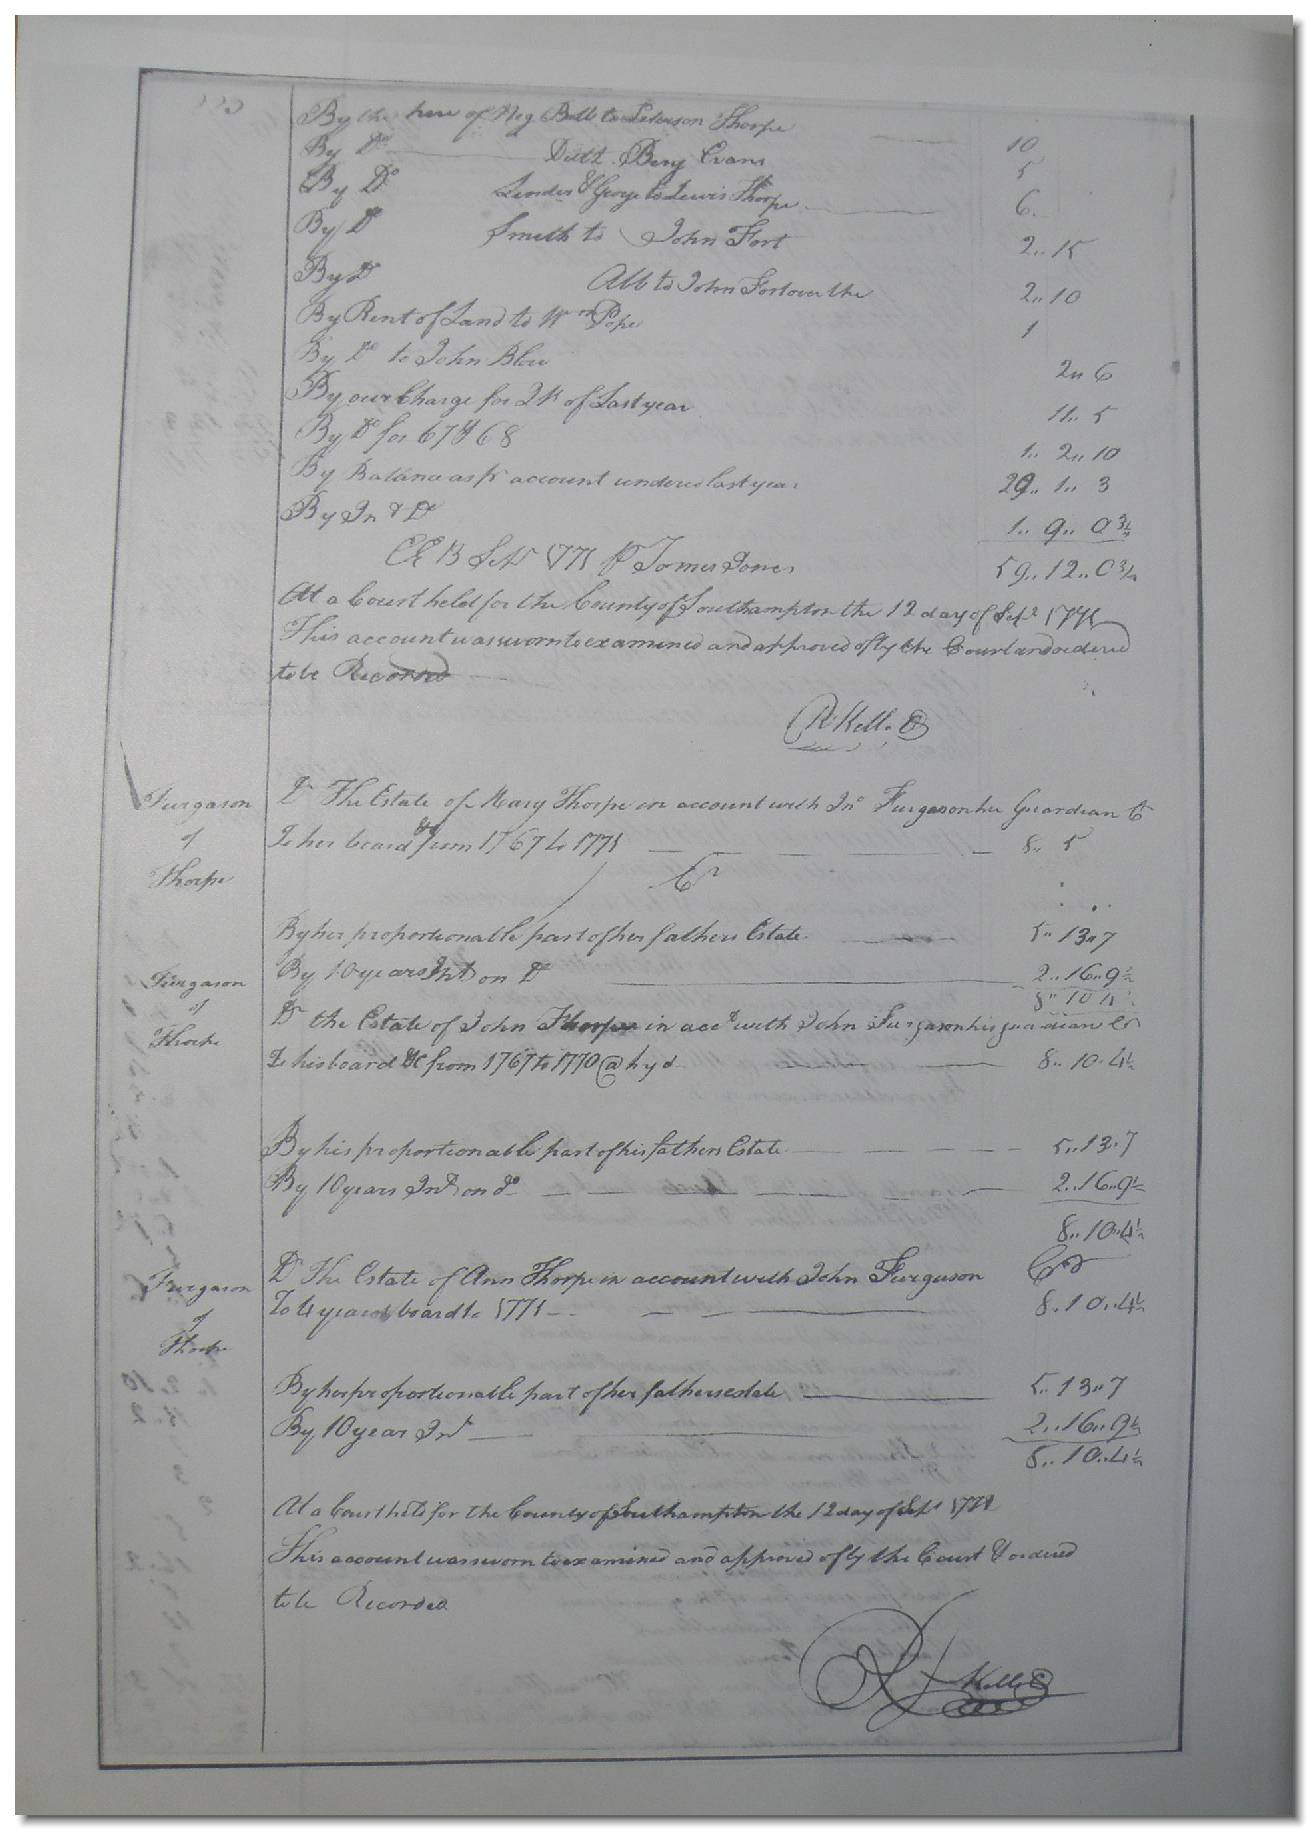 By the hire of Neg Bob to Peterson Thorpe 10
By Do Benj Evans 5
By Do George to Lewis Thorpe 6
By Do Smith to John Fort 2.. 15
By Do to John Fort over the 2.. 10
By Rent of Land to Wm Pope 1
By Do to John Blow 2.. 6
By our Charge for of Last year 11.. 5
By Do for 67 & 68 1.. 2.. 10
By Balance as pr account last year 29.. 1.. 3
By In & Do 1.. 9.. 0 3/4
E E 13 Sepr 1771 pr James Jones 59.. 12.. 0 3/4
At a Court held for the County of Southampton the 12 day of Sept 1771
This account was sworn to examined and approved of by the Court and ordered
to be Recorded
R Kello
Furgason
of
Thorpe
Dr The Estate of Mary Thorpe in account with Jno Furgason her Guardian Cr
To her board &c from 1767 to 1771 8.. 5
Cr
By her proportionable part of her fathers Estate 5.. 13.. 7
By 10 years Int on Do 2.. 16.. 9 1/2
8.. 10 4 1/2
Furgason
of
Thorpe
Dr the Estate of John Thorpe in acct with John Furgason his guardian Cr
To his board &c from 1767 to 1770 @ 8.. 10.. 4 1/2
By his proportionable part of his fathers Estate 5.. 13.. 7
By 10 years Int on do 2.. 16.. 9 1/2
8.. 10.. 4 1/2
Furgason
of
Thorpe
Dr The Estate of Ann Thorpe in account with John Furguson Cr
To 4 years board to 1771 8.. 10.. 4 1/2
By her proportionable part of her fathers estate 5.. 13.. 7
By 10 year Int 2.. 16.. 9 1/2
8.. 10.. 4 1/2
At a Court held for the County of Southampton the 12 day of Sept 1771
This account was sworn to examined and approved of by the Court & ordered
to be Recorded
R Kello